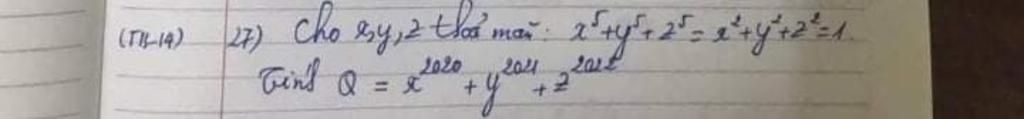 (TB-14) 27) Cho x,y,z thoả mãn: x⁵+y⁵+z⁵=x²+y²+z²=1.
Tính Q = x²⁰²⁰ + y²⁰²¹ + z²⁰²²